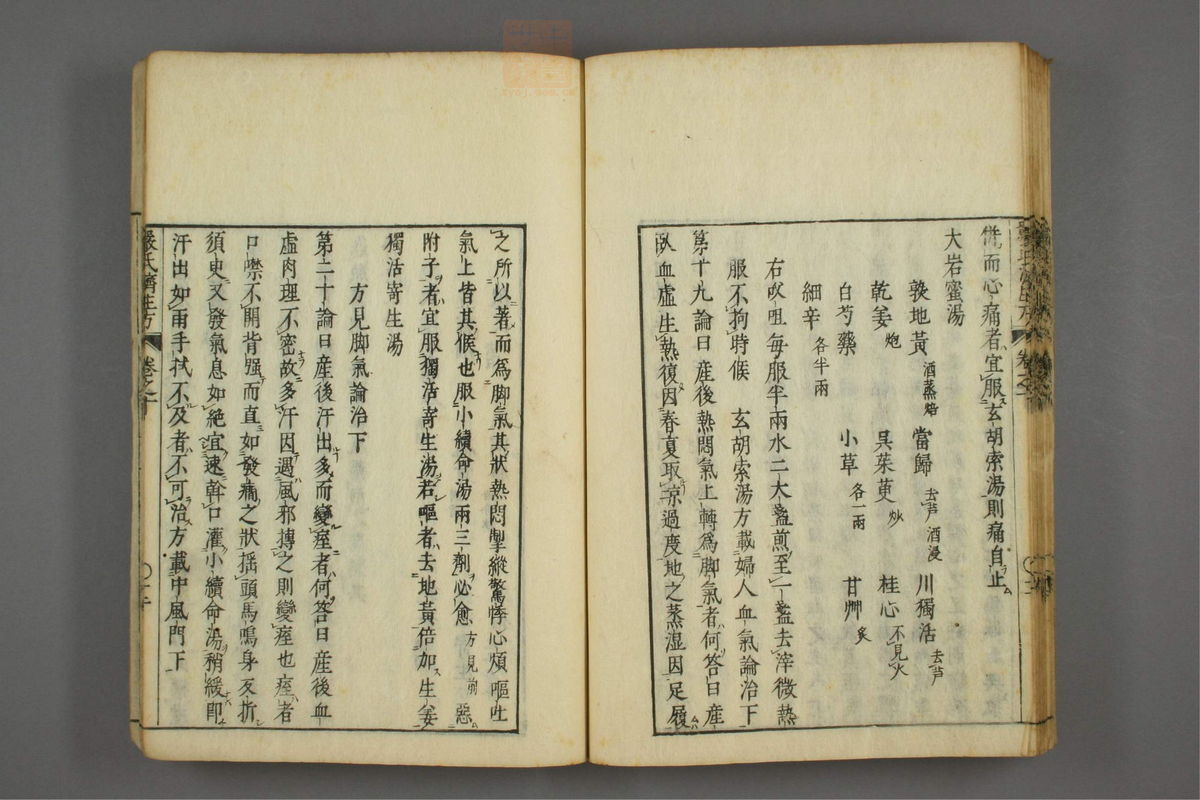 慌而心痛者宜服玄胡索湯則痛自止
大岩蜜湯
熟地黃 酒蒸焙 當歸 去芦酒浸 川獨活 去芦
乾姜 炮 吳茱萸 炒 桂心 不見火
白芍藥 小草 各一兩 甘艸 炙
細辛 各半兩
右㕮咀每服半兩水二大盞煎至一盞去滓微熱
服不拘時候 玄胡索湯方載婦人血氣論治下
第十九論曰產後熱悶氣上轉爲脚氣者何答曰產
臥血虛生熱復因春夏取凉過度地之蒸湿因足履
之所以著而爲脚氣其狀熱悶掣縱驚悸心煩嘔吐
氣上皆其候也服小續命湯兩三劑必愈 方見前 惡
附子者宜服獨活寄生湯若嘔者去地黃倍加生姜
獨活寄生湯
方見脚氣論治下
第二十論曰產後汗出多而變痓者何答曰產後血
虛肉理不密故多汗因遇風邪搏之則變痓也痓者
口噤不開背强而直如發癇之狀揺頭馬鳴身反折
須臾又發氣息如絶宜速斡口灌小續命湯稍緩即
汗出如雨手拭不及者不可治方載中風門下
嚴氏濟生方 卷之